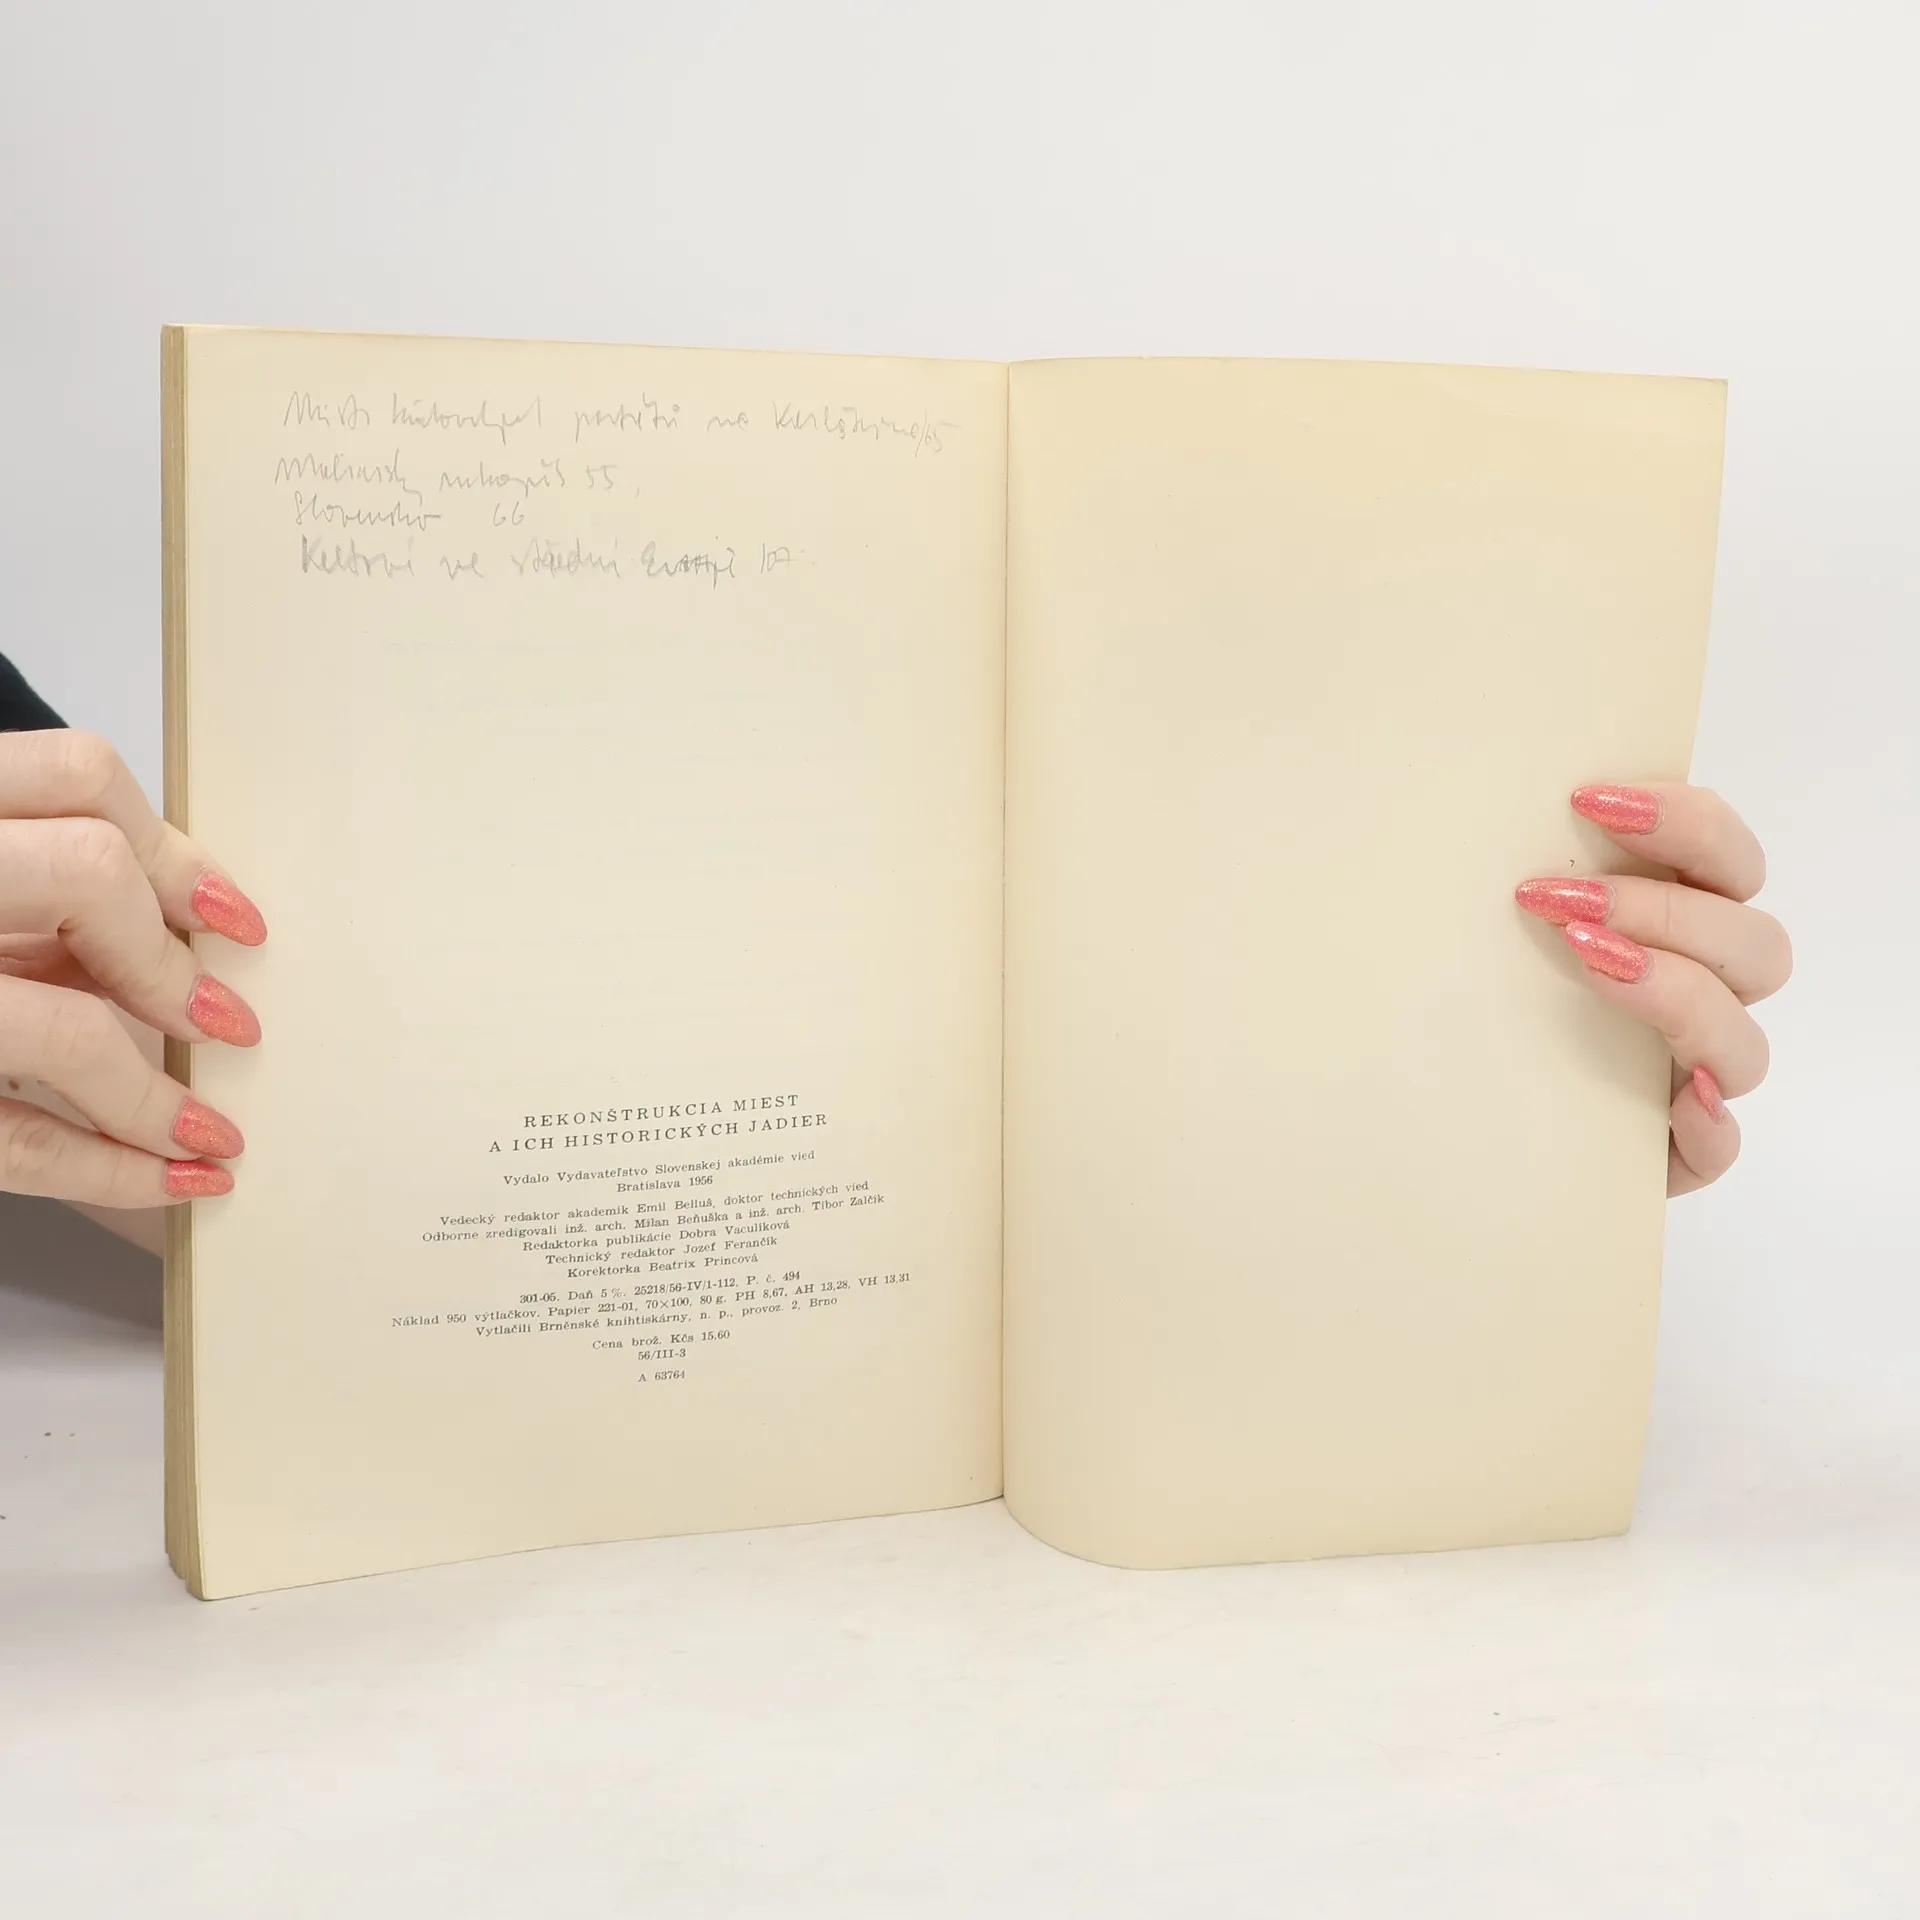 Malířský rukopis 55,
Slovensko 66
Keltové ve střední Evropě 107
REKONŠTRUKCIA MIEST
A ICH HISTORICKÝCH JADIER
Vydalo Vydavateľstvo Slovenskej akadémie vied
Bratislava 1956
Vedecký redaktor akademik Emil Belluš, doktor technických vied
Odborne zredigovali inž. arch. Milan Beňuška a inž. arch. Tibor Zalčík
Redaktorka publikácie Dobra Vaculíková
Technický redaktor Jozef Ferančík
Korektorka Beatrix Princová
301-05. Daň 5 %. 25218/56-IV/1-112, P. č. 494
Náklad 950 výtlačkov. Papier 221-01, 70×100, 80 g. PH 8,67, AH 13,28, VH 13,31
Vytlačili Brněnské knihtiskárny, n. p., provoz. 2, Brno
Cena brož. Kčs 15,60
56/III-3
A 63764